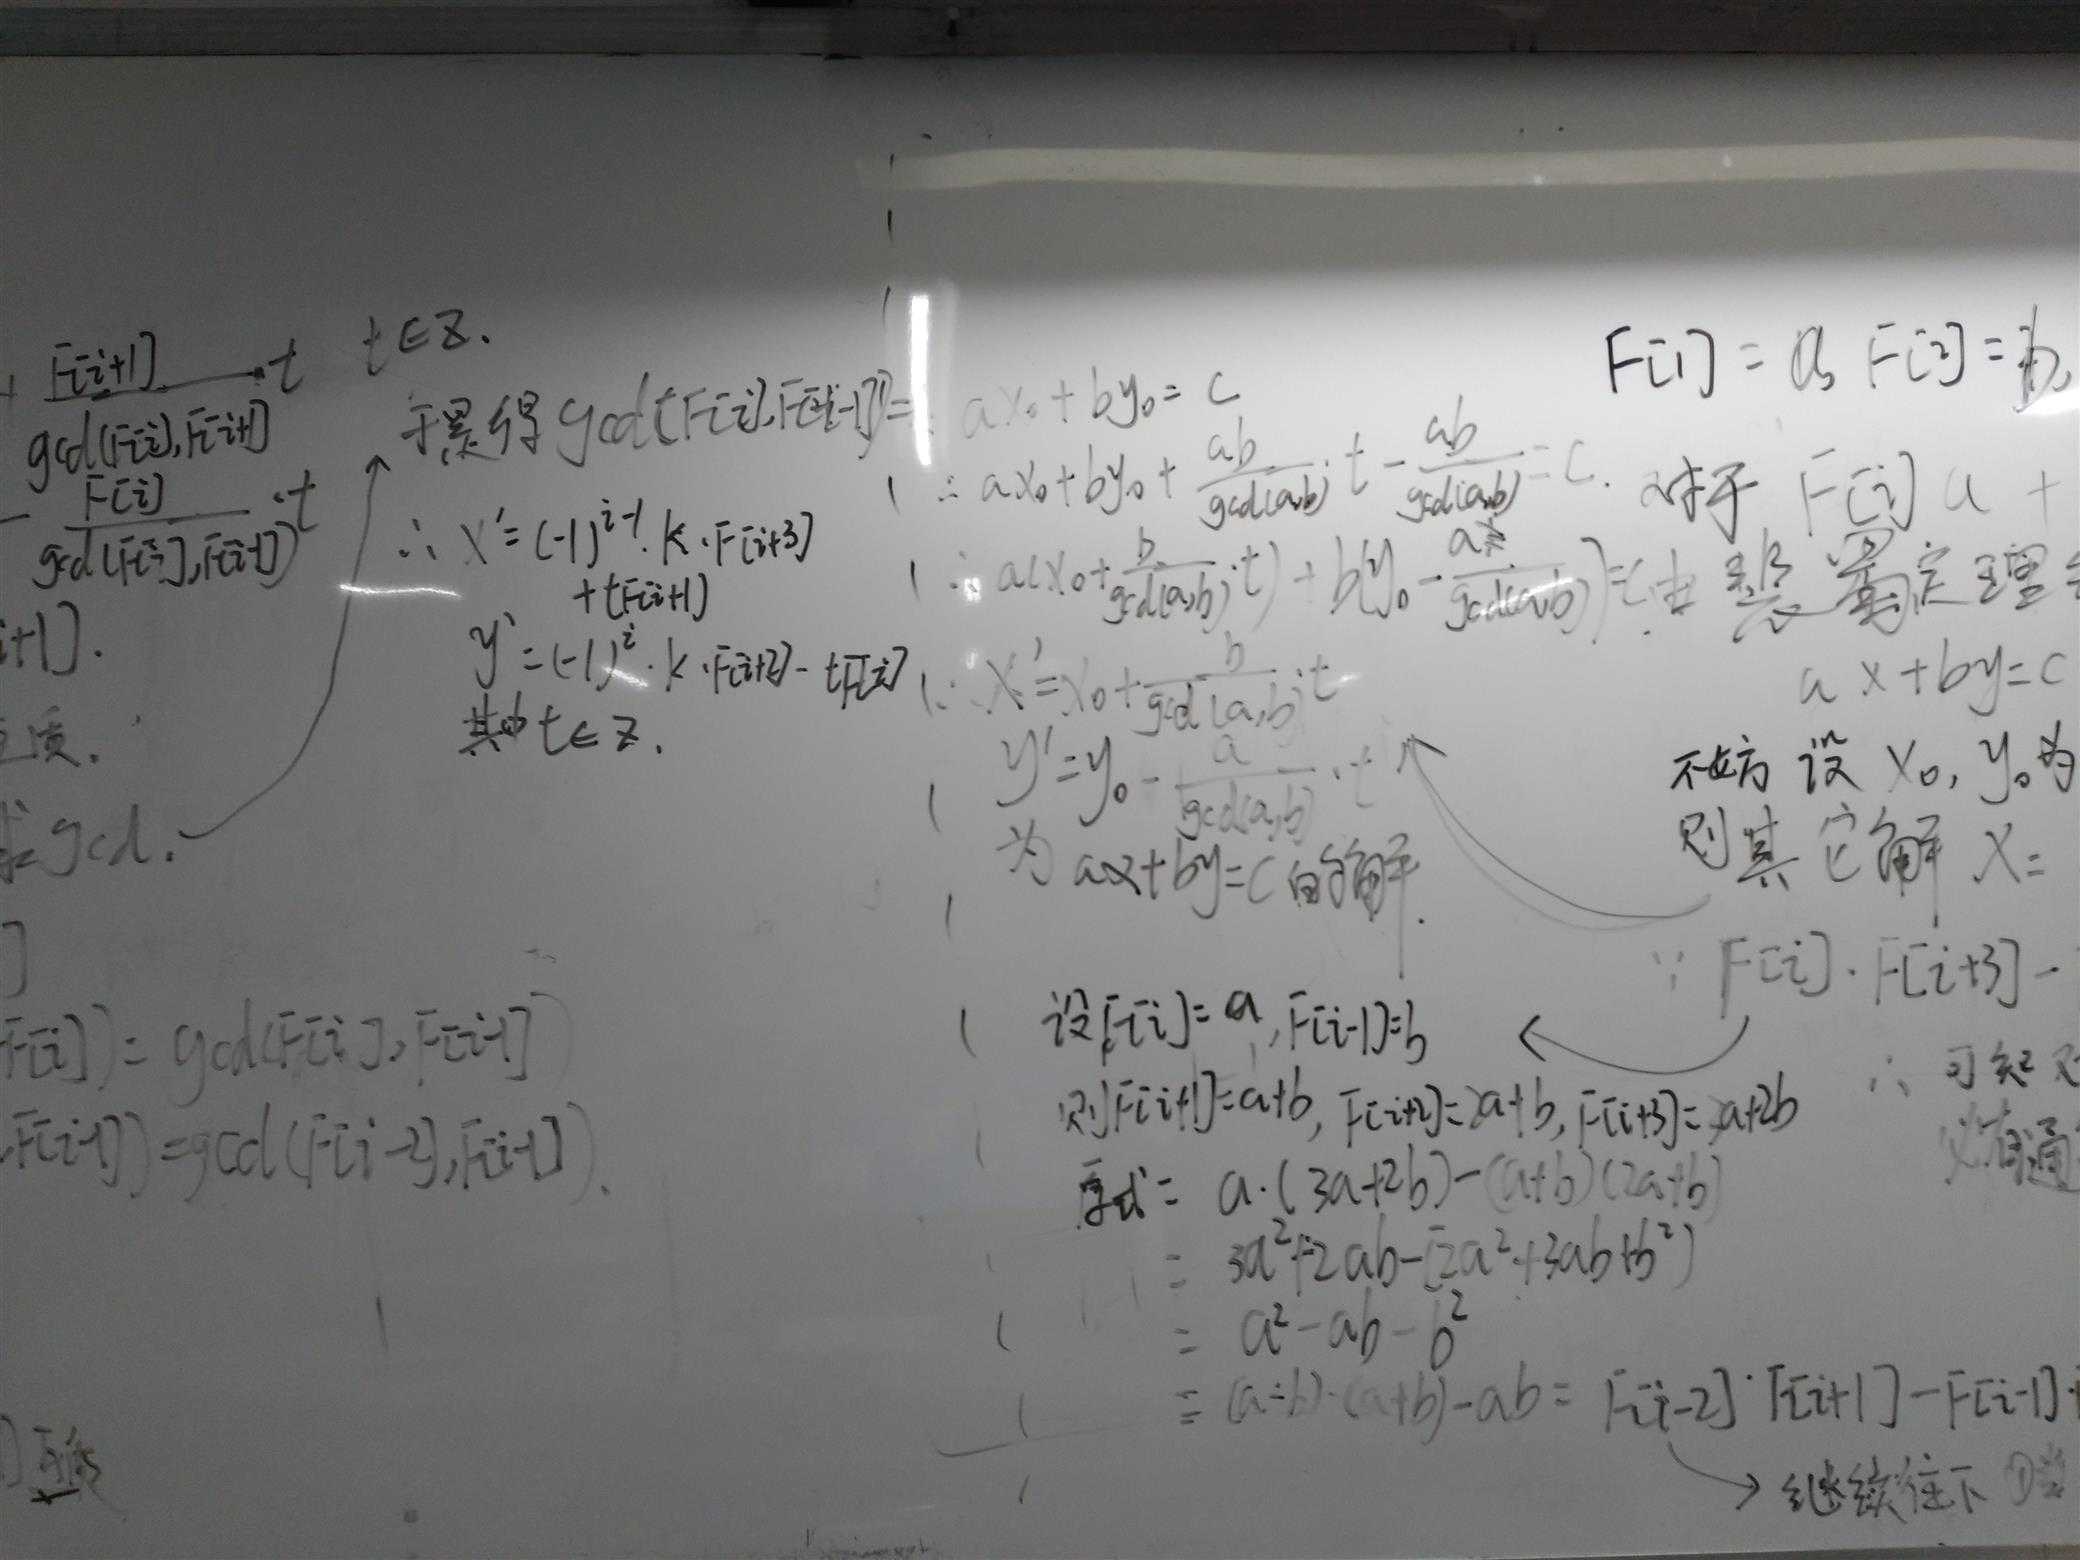 F[i+1]
· t t∈Z.
gcd(F[i],F[i+1])
F[i]
· t
gcd(F[i],F[i+1])
i+1].
质.
求gcd.
]
F[i])=gcd(F[i],F[i-1])
F[i-1])=gcd(F[i-2],F[i-1]).
于是得gcd(F[i],F[i-1])=
∴ x'=(-1)^{i-1}·k·F[i+3]
+tF[i+1]
y'=(-1)^i·k·F[i+2]-tF[i]
其中t∈Z.
ax₀+by₀=c
∴ ax₀+by₀+\frac{ab}{gcd(a,b)}t-\frac{ab}{gcd(a,b)}=c.
∴ a(x₀+\frac{b}{gcd(a,b)}·t)+b(y₀-\frac{at}{gcd(a,b)})=c.
∴ x'=x₀+\frac{b}{gcd(a,b)}·t
y'=y₀-\frac{a}{gcd(a,b)}·t
为ax+by=c的解.
设F[i]=a,F[i-1]=b
则F[i+1]=a+b, F[i+2]=2a+b, F[i+3]=3a+2b
原式= a·(3a+2b)-(a+b)(2a+b)
= 3a²+2ab-(2a²+3ab+b²)
= a²-ab-b²
= (a-b)·(a+b)-ab= F[i-2]·F[i+1]-F[i-1]·
→ 继续往下 ①当
F[1]=a, F[2]=b,
对于 F[i]a +
由裴蜀定理
ax+by=c
不妨设 x₀, y₀为
则其它解 x=
∵ F[i]·F[i+3]-
∴ 可知